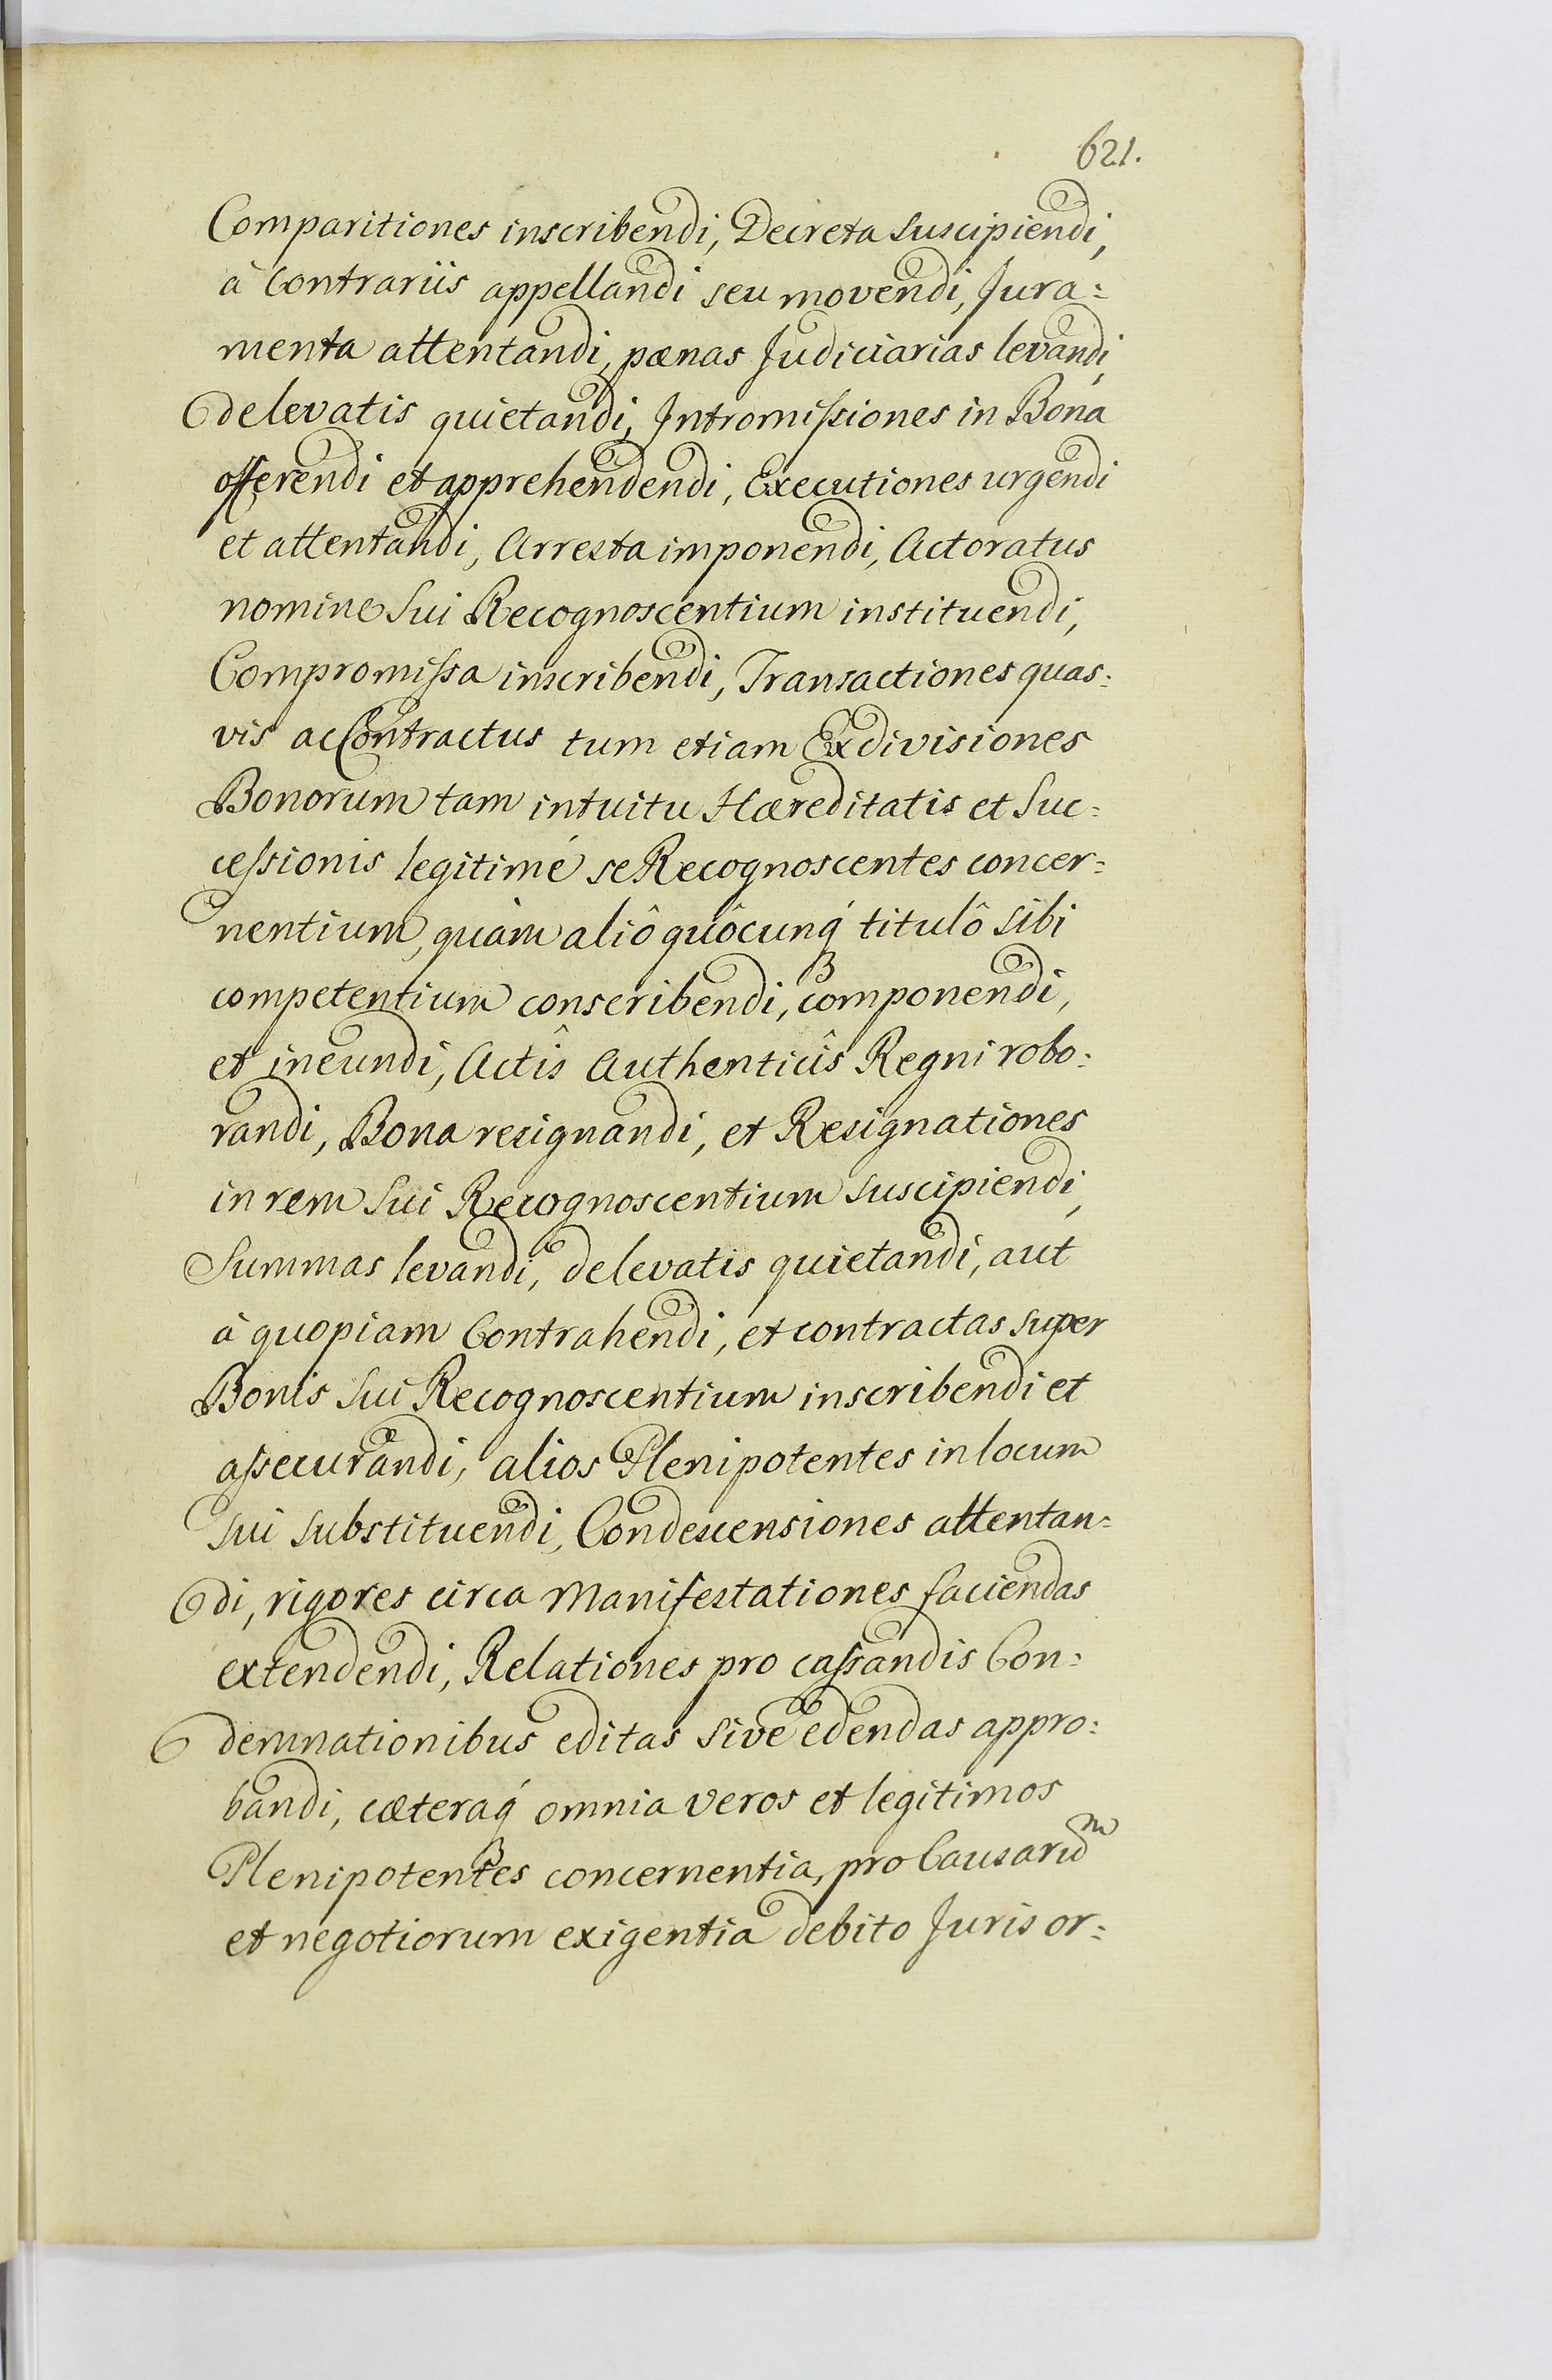 621.
Comparitiones inscribendi, Decreta suscipiendi,
à Contrariis appellandi seu movendi, Jura:
menta attentandi, pænas Judiciarias levandi,
de levatis quietandi, Intromissiones in Bona
offerendi et apprehendendi, Executiones urgendi
et attentandi, Arresta imponendi, Actoratus
nomine Sui Recognoscentium instituendi,
Compromissa inscribendi, Transactiones quas:
vis ac Contractus tum etiam Exdivisiones
Bonorum tam intuitu Hæreditatis et Suc:
cessionis legitimé se Recognoscentes concer:
nentium, quàm aliô quôcunq́ titulô sibi
competentium conscribendi, componendi,
et ineundi, Actîs Authenticîs Regni robo:
randi, Bona resignandi, et Resignationes
in rem Sui Recognoscentium suscipiendi,
Summas levandi, de levatis quietandi, aut
à quopiam Contrahendi, et contractas super
Bonis Sui Recognoscentium inscribendi et
assecurandi, alios Plenipotentes in locum
sui substituendi, Condescensiones attentan:
di, rigores circa Manifestationes faciendas
extendendi, Relationes pro cassandis Con:
demnationibus editas sive edendas appro:
bandi, cæteraq́ omnia veros et legitimos
Plenipotentes concernentia, pro Causarũm
et negotiorum exigentia debito Juris or: